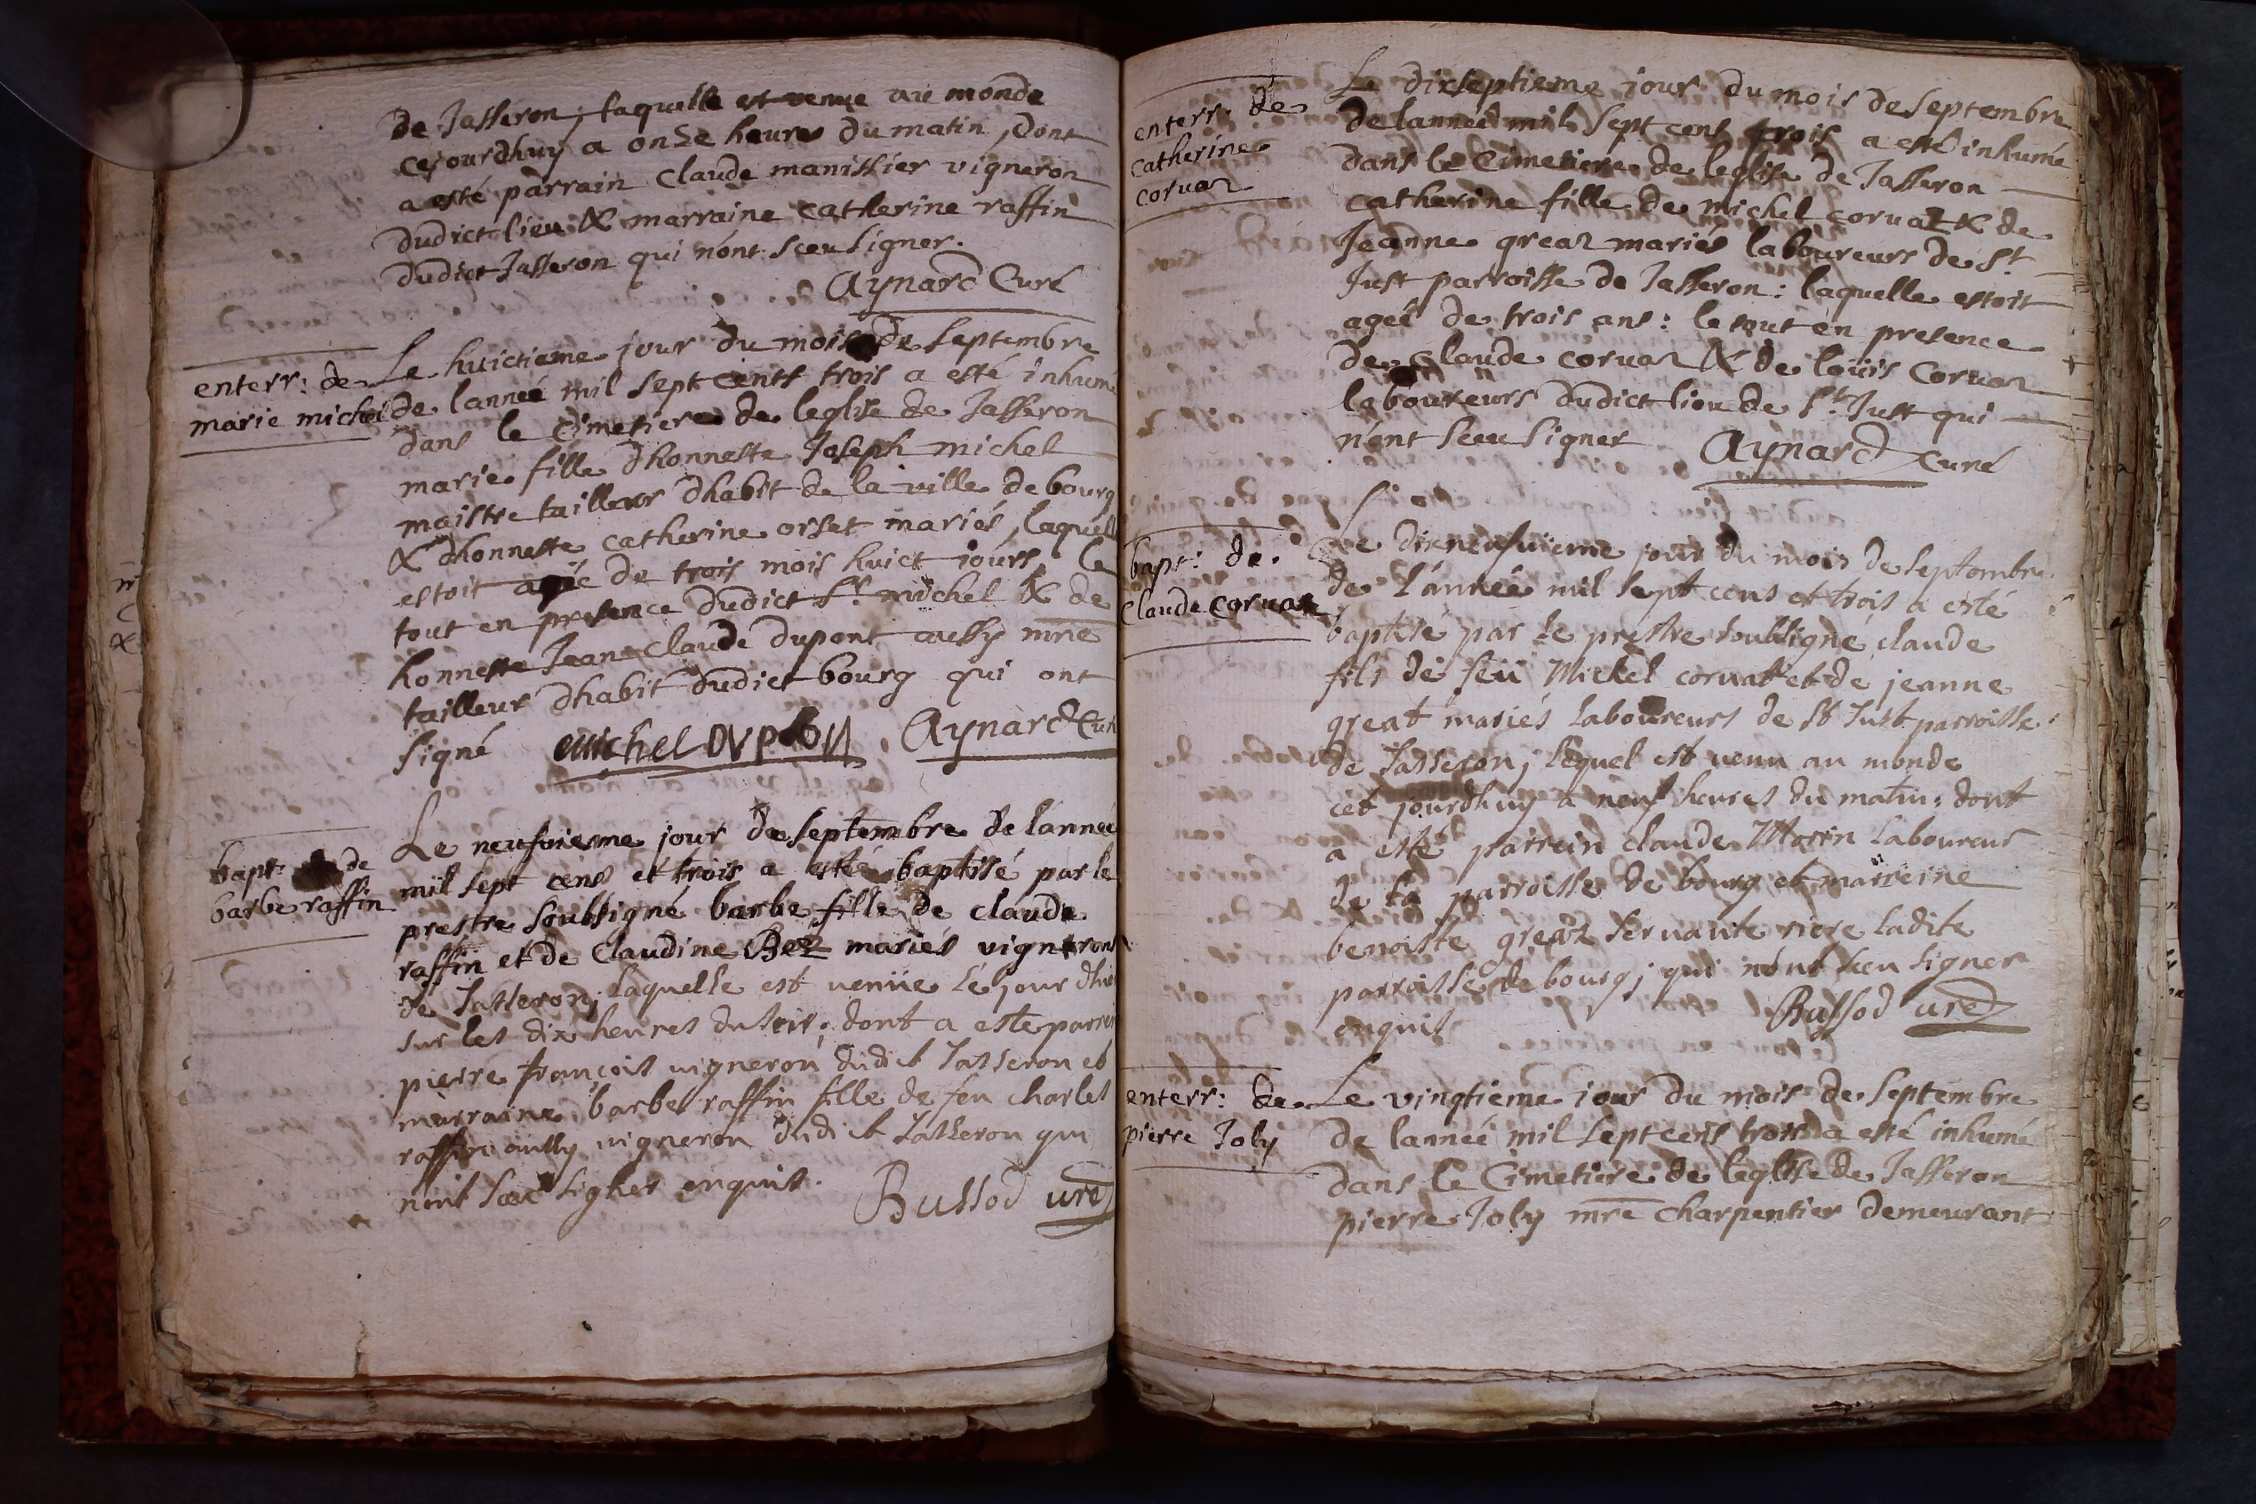 de Jasseron; laquelle est venue au monde
cejourdhuy a onze heures du matin, dont
a esté parrain claude manissier vigneron
dudict lieu & marraine catherine raffin
dudict Jasseron qui nont sceu signer.
Aynard Curé
enterr: de
marie michel
Le huictieme jour du mois de septembre
de lanneé mil sept cents trois a esté inhumé
dans le Cimetiere de leglise de Jasseron
marie fille dhonneste Joseph michel
maistre tailleur dhabit de la ville de bourg
& dhonneste catherine orset mariés, laquelle
estoit agée de trois mois huict jours, le
tout en presence dudict sr. michel & de
honneste Jean Claude dupont aussy mre
tailleur dhabit dudict bourg qui ont
signé michel DVPON Aynard Curé
bapt: de
barbe raffin
Le neufvieme jour de septembre de lanneé
mil sept cens et trois a esté baptisé par le
prestre soubsigné barbe fille de claude
raffin et de Claudine Bez mariés vignerons
de Jasseron; laquelle est venüe le jour dhier
sur les dix heures du soir: dont a este parrein
pierre françois vigneron dudict Jasseron et
marraine barbe raffin fille de feu charles
raffin aussy vigneron dudict Jasseron qui
nont sceu signer enquis.
Bussod
enterr: de
catherine
corvaz
Le dixseptieme jour du mois de septembre
de lanneé mil sept cent trois a esté inhumé
dans le Cimetiere de leglise de Jasseron
catherine fille de michel corvaz & de
Jeanne greaz mariés laboureurs de St.
Just parroisse de Jasseron: laquelle estoit
ageé de trois ans: le tout en presence
de Claude corvaz & de loüis Corvaz
laboureurs dudict lieu de St. Just qui
nont sceu signer Aynard Curé
bapt: de
Claude corvaz
Le dixneufvieme jour du mois de septembre
de l'anneé mil sept cens et trois a esté
baptisé par le prestre soubsigné claude
fils de feü Michel corvat et de jeanne
great mariés laboureurs de St Just parroisse
de Jasseron; lequel est venu au monde
cet jourdhuy a neuf heures du matin: dont
a esté parrein claude Morin laboureur
de la parroisse de bourg et marreine
benoiste greaz servante riere ladite
parroisse de bourg; qui nont sceu signer
enquis Bussod
enterr: de
pierre Joly
Le vingtieme jour du mois de septembre
de lanneé mil sept cens trois a esté inhumé
dans le Cimetiere de leglise de Jasseron
pierre Joly mre charpentier demeurant